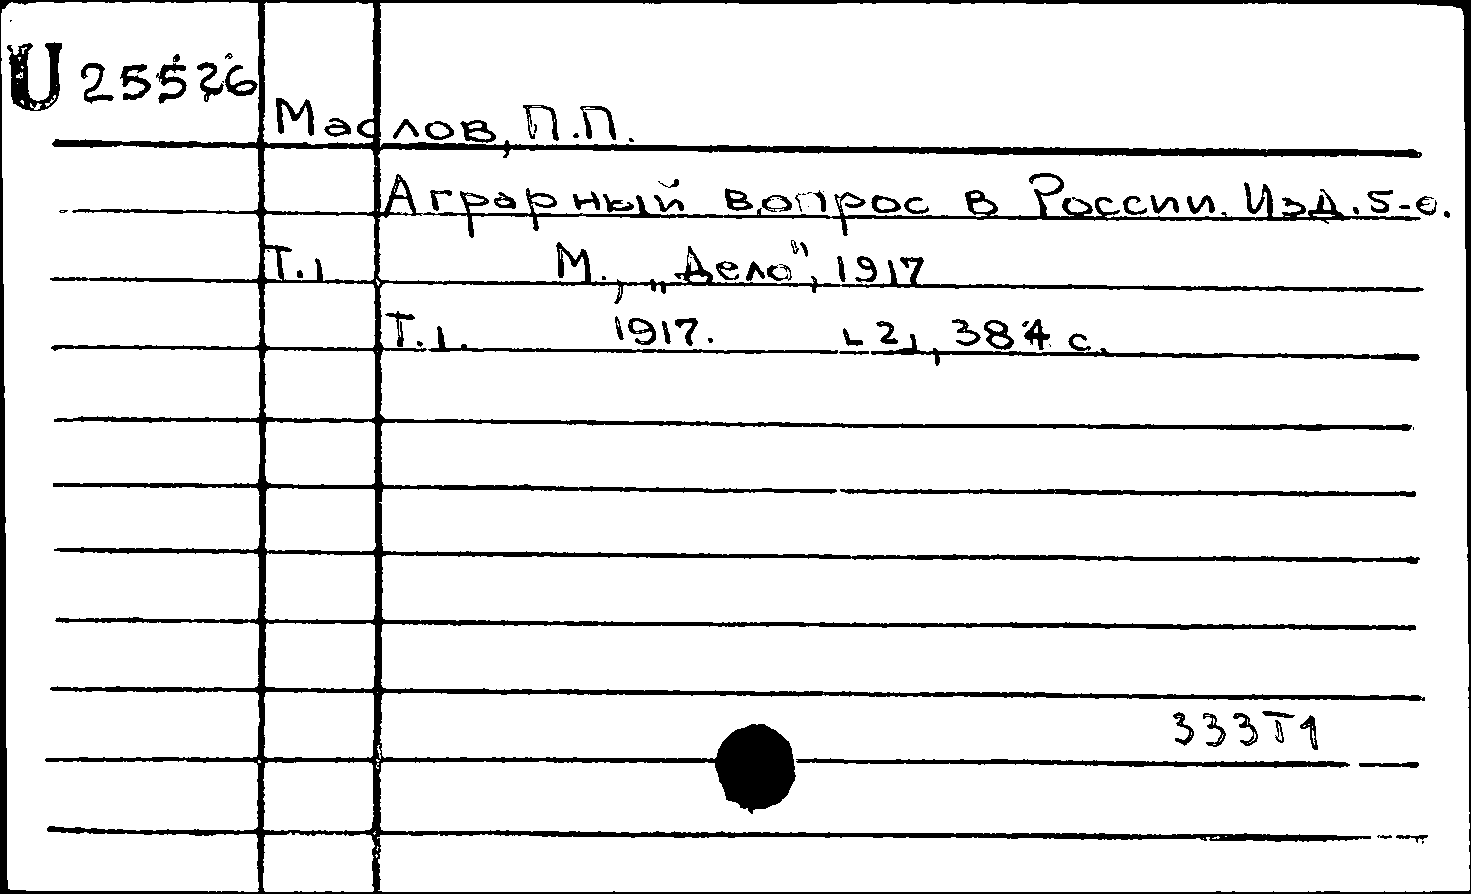 U 25526
Маслов, П.П.
Аграрный вопрос в России. Изд. 5-е.
Т.1 М., „Дело", 1917
Т.1. 1917. [2], 384 с.
333Т1